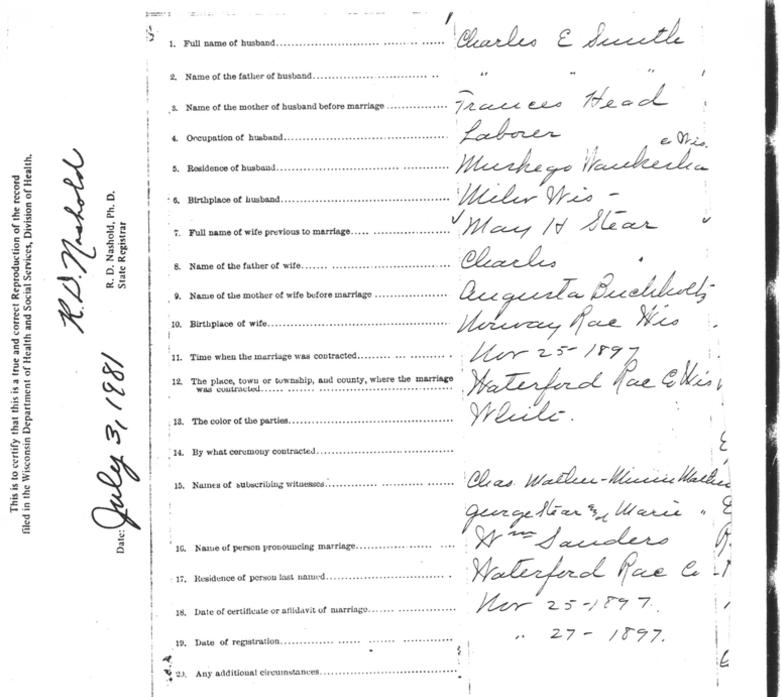 1. Full name of husband Charles E Smith
2. Name of the father of husband " " "
3. Name of the mother of husband before marriage Frances Head
4. Occupation of husband Laborer
5. Residence of husband Muskego Waukesha Co Wis.
6. Birthplace of husband Milw Wis -
7. Full name of wife previous to marriage May H Stear
8. Name of the father of wife Charles
9. Name of the mother of wife before marriage Augusta Buchholtz
10. Birthplace of wife Norway Rac Wis
11. Time when the marriage was contracted Nov 25-1897
12. The place, town or township, and county, where the marriage
was contracted Waterford Rac Co Wis
13. The color of the parties White.
14. By what ceremony contracted
15. Names of subscribing witnesses Chas. - Minnie
George Stear and Marie "
16. Name of person pronouncing marriage Wm Sanders
17. Residence of person last named Waterford Rac Co
18. Date of certificate or affidavit of marriage Nov 25-1897.
19. Date of registration " 27-1897.
20. Any additional circumstances
This is to certify that this is a true and correct Reproduction of the record
filed in the Wisconsin Department of Health and Social Services, Division of Health.
R.D. Nashold
R. D. Nashold, Ph. D.
State Registrar
Date: July 3, 1981